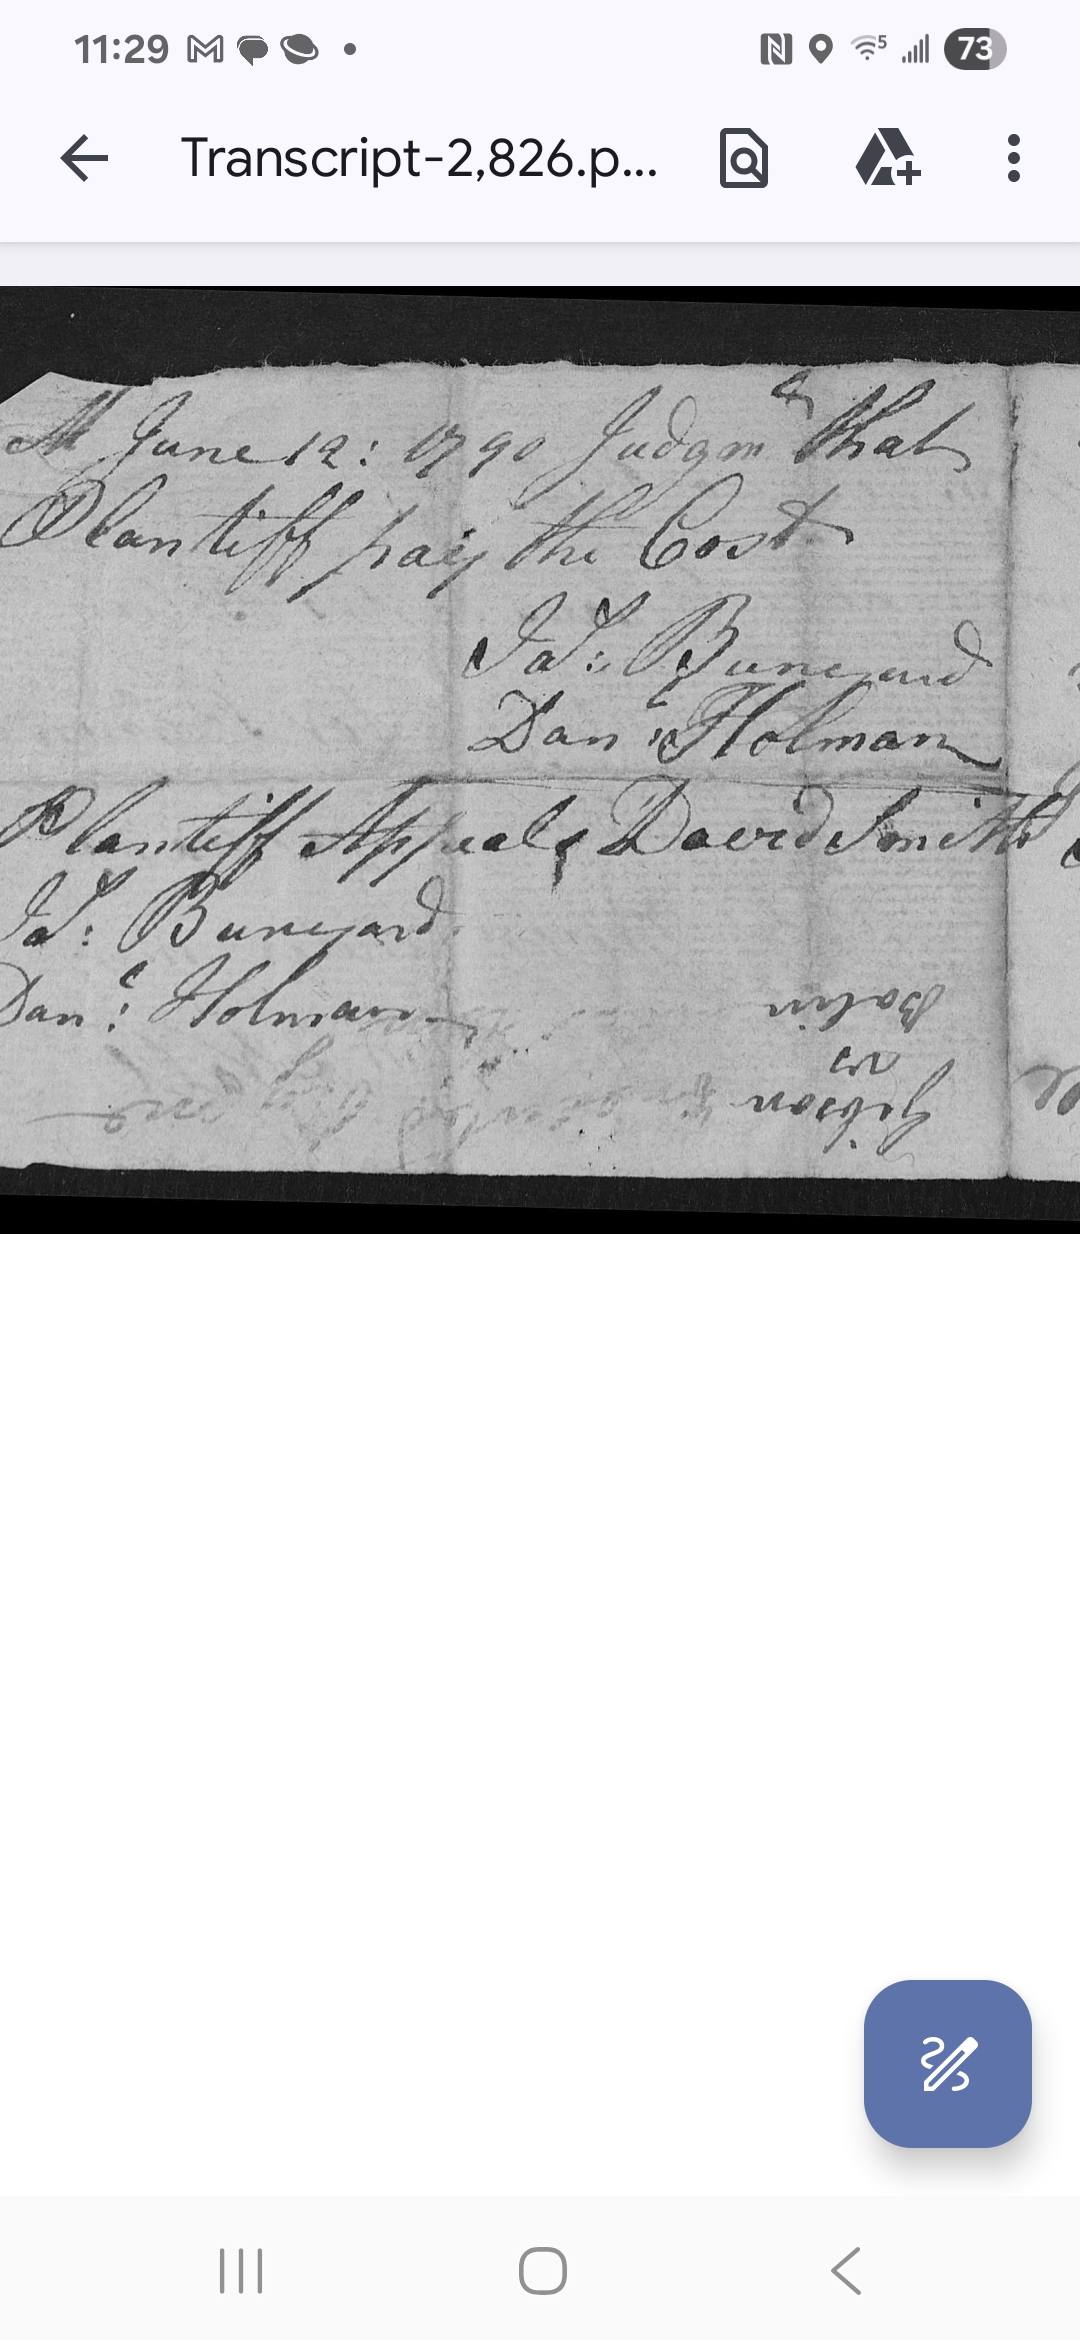 11:29
73
Transcript-2,826.p...
At June 12: 1790 Judgmt that
Plantiff pay the Cost
Jas: Bunyard
Danl: Holman
Plantiff Appeals David Smith
Jas: Bunyard
Danl: Holman
Gibson
vs